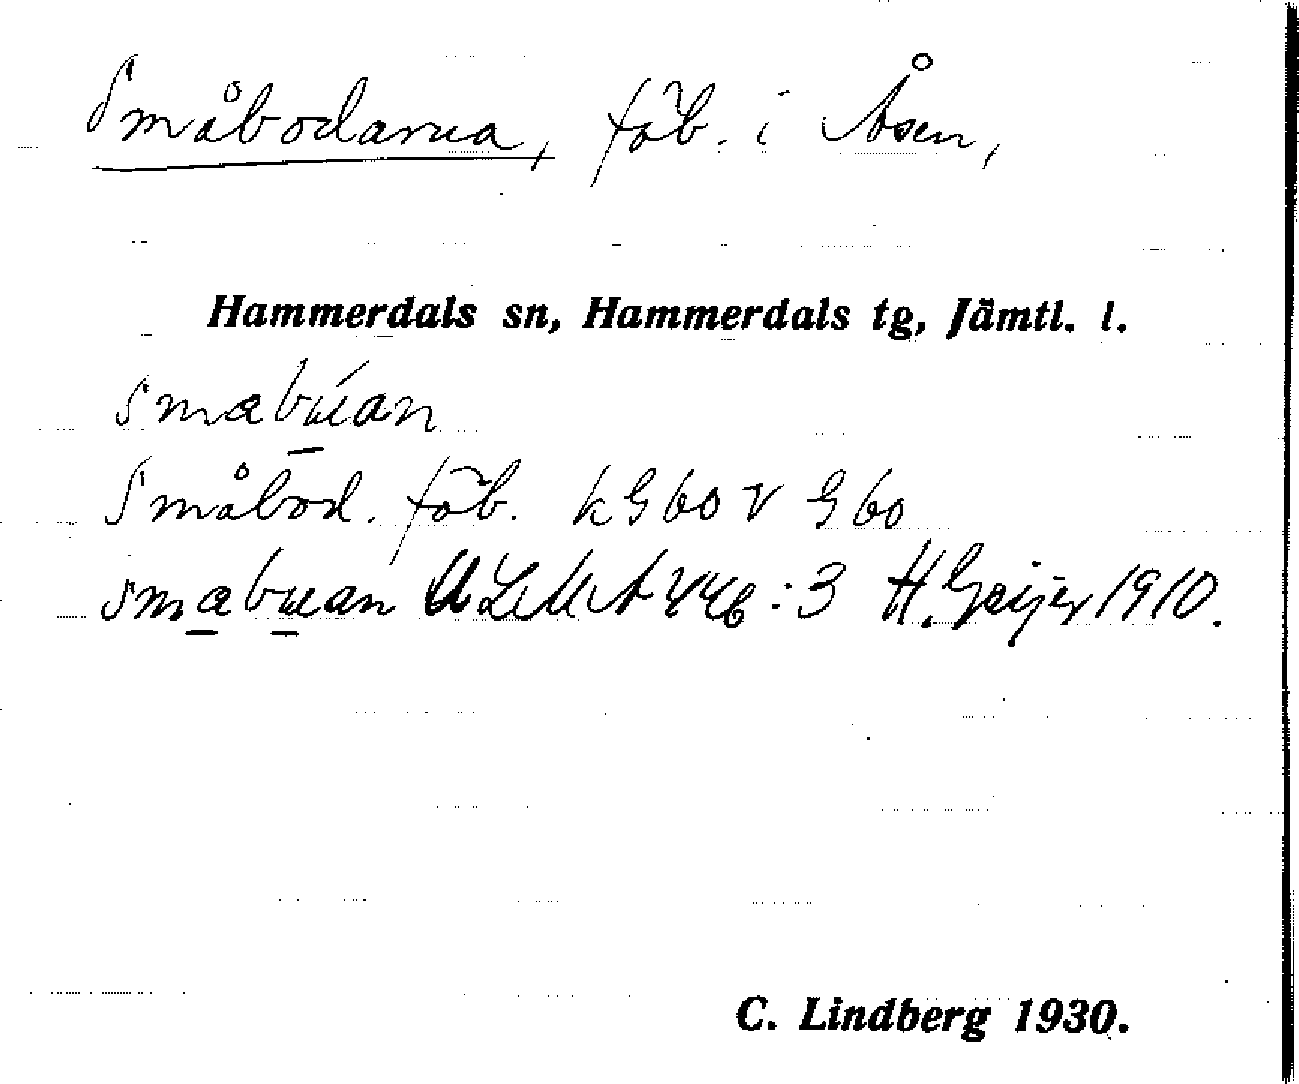 Småbodarna, fäb. i Åsen,
Hammerdals sn, Hammerdals tg, Jämtl. l.
smabuan
Småbod. fäb. k G 60 v G 60
smabuan ULMA 446:3 H. Geijer 1910.
C. Lindberg 1930.